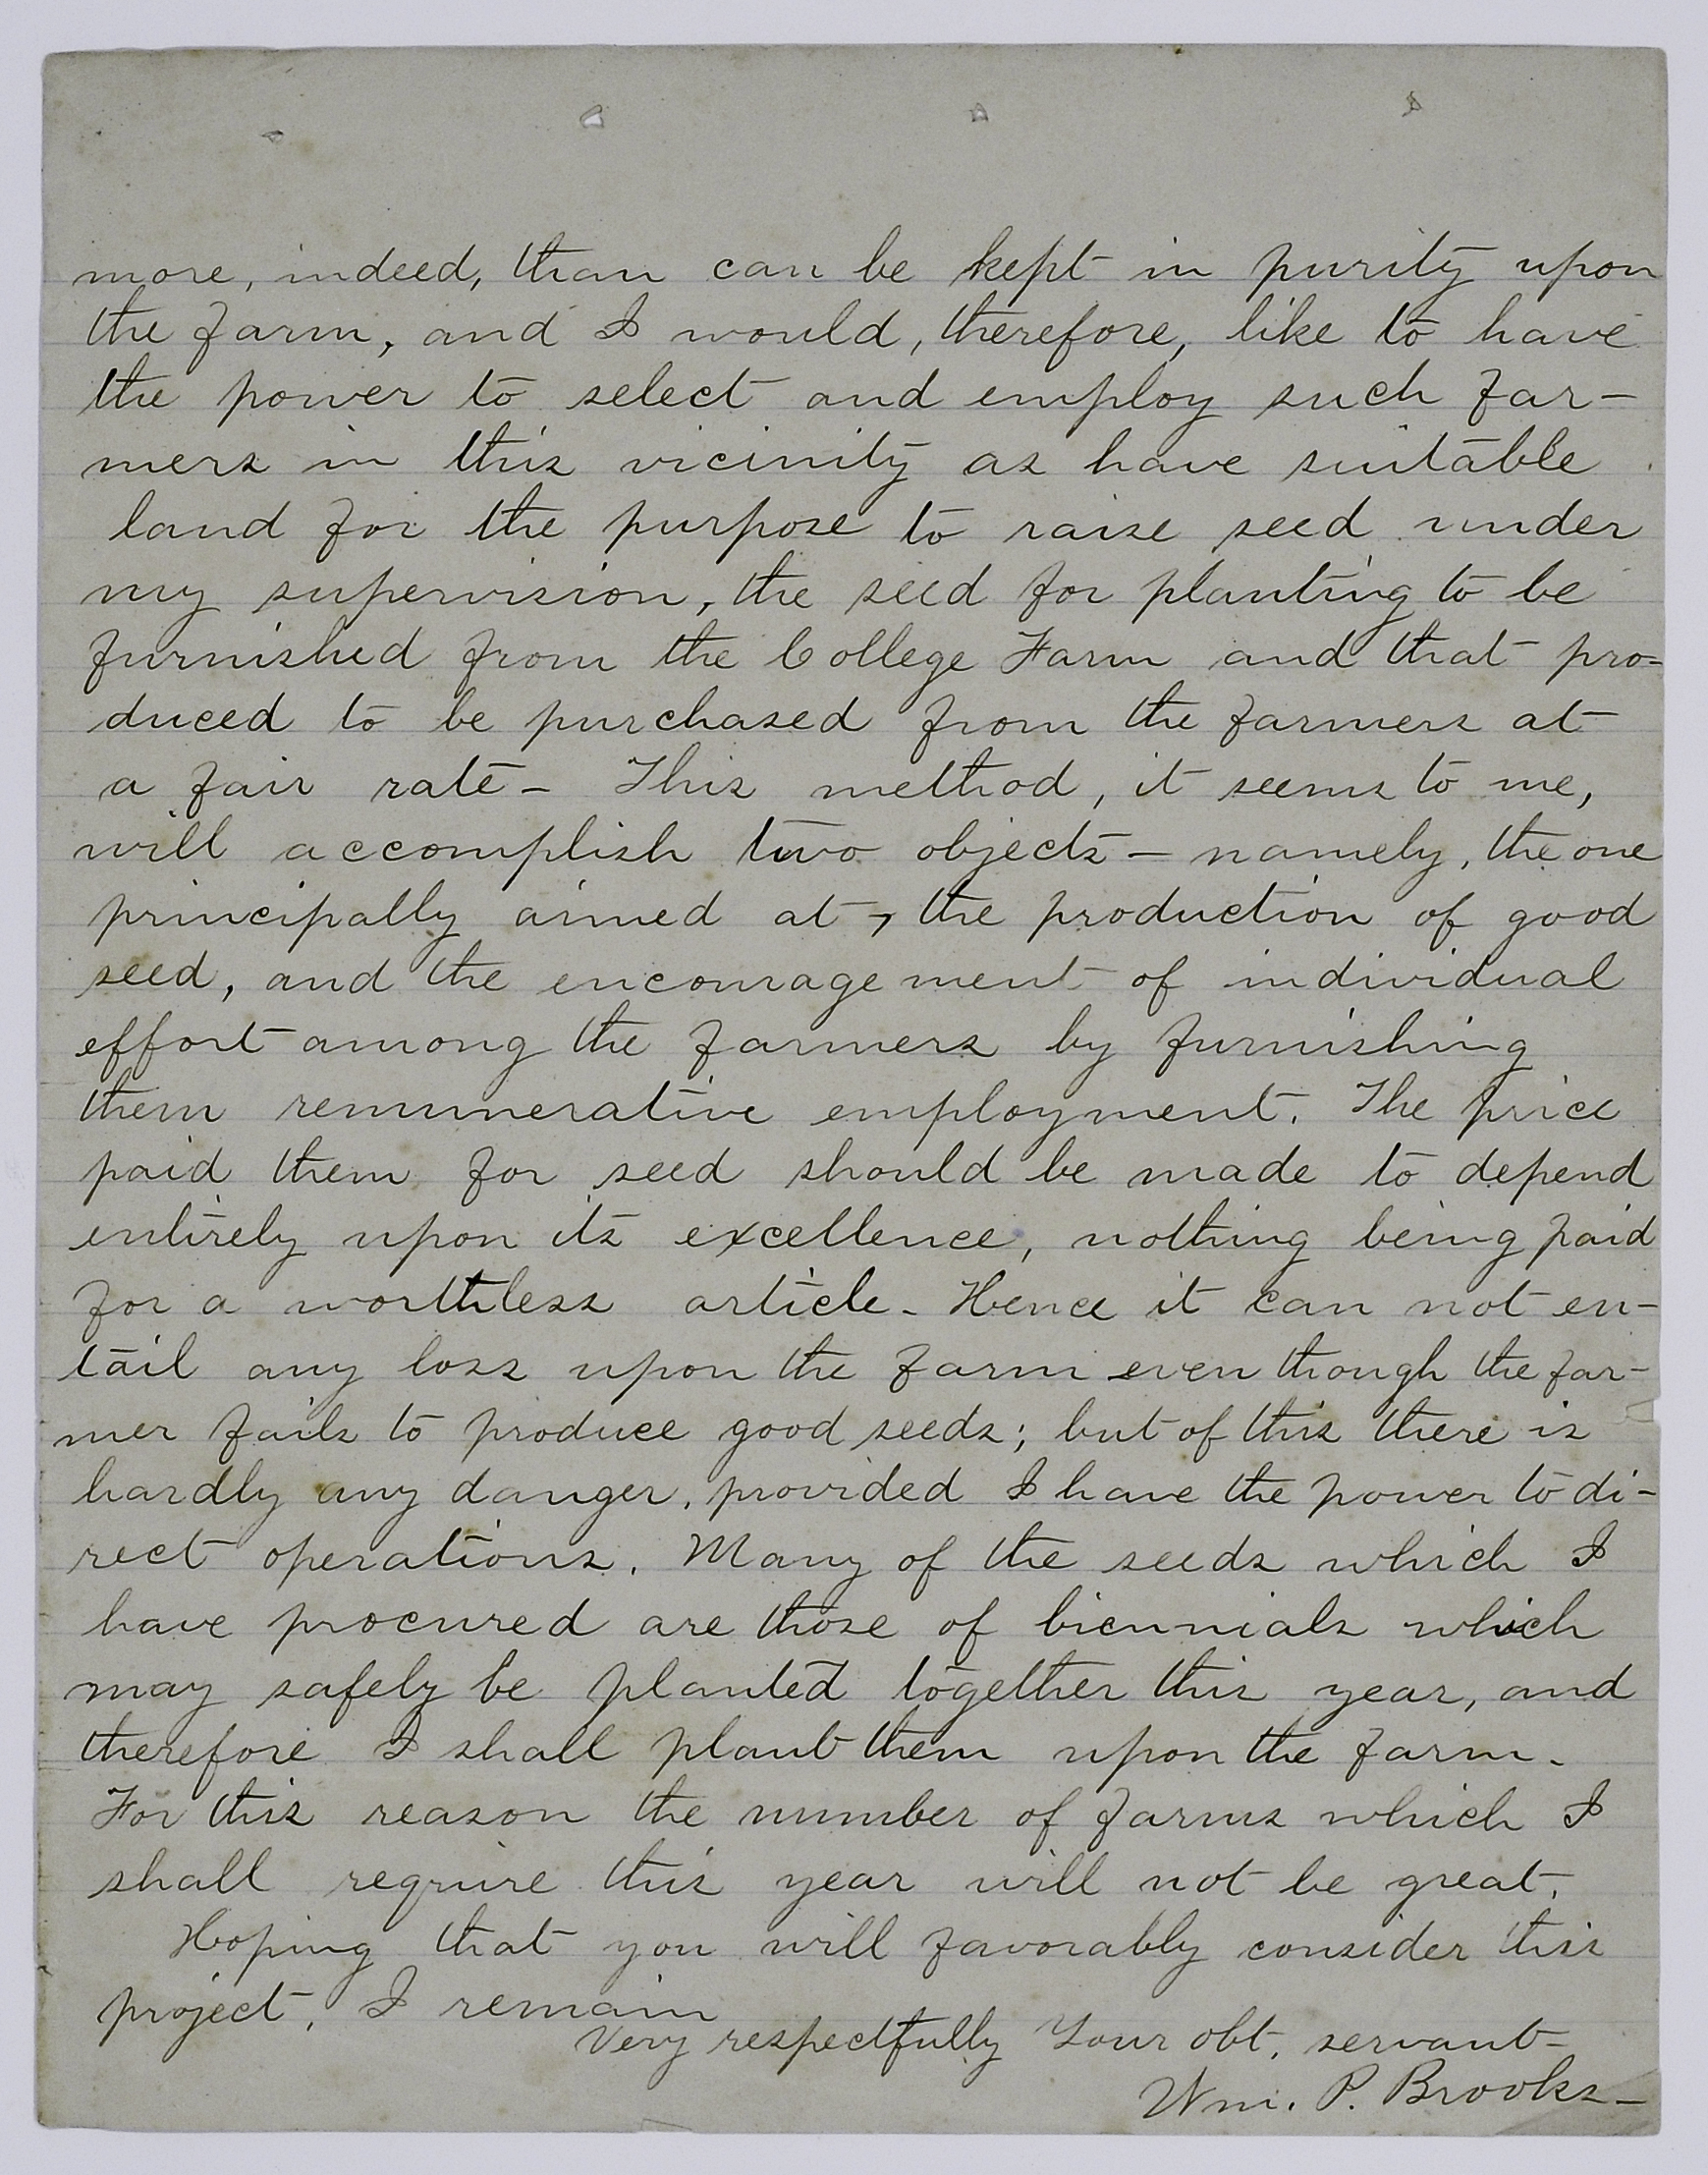 more, indeed, than can be kept in purity upon
the farm, and I would, therefore, like to have
the power to select and employ such far-
mers in this vicinity as have suitable
land for the purpose to raise seed under
my supervision, the seed for planting to be
furnished from the College Farm and that pro-
duced to be purchased from the farmers at
a fair rate - This method, it seems to me,
will accomplish two objects - namely, the one
principally aimed at, the production of good
seed, and the encouragement of individual
effort among the farmers by furnishing
them remunerative employment. The price
paid them for seed should be made to depend
entirely upon its excellence, nothing being paid
for a worthless article. Hence it can not en-
tail any loss upon the farm even though the far-
mer fails to produce good seeds; but of this there is
hardly any danger, provided I have the power to di-
rect operations. Many of the seeds which I
have procured are those of biennials which
may safely be planted together this year, and
therefore I shall plant them upon the farm.
For this reason the number of farms which I
shall require this year will not be great.
Hoping that you will favorably consider this
project, I remain
Very respectfully Your obt. servant-
Wm. P. Brooks-